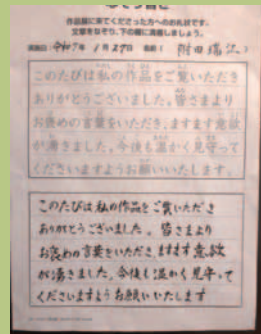 作品展に来てくださった方へのお礼状です。
文章をなぞり、下の欄に清書しましょう。
令和7年 1月27日
このたびは私の作品をご覧いただき
ありがとうございました。皆さまより
お褒めの言葉をいただき、ますます意欲
が湧きました。今後も温かく見守って
くださいますようお願いいたします。
このたびは私の作品をご覧いただき
ありがとうございました。皆さまより
お褒めの言葉をいただき、ますます意欲
が湧きました。今後も温かく見守って
くださいますようお願いいたします